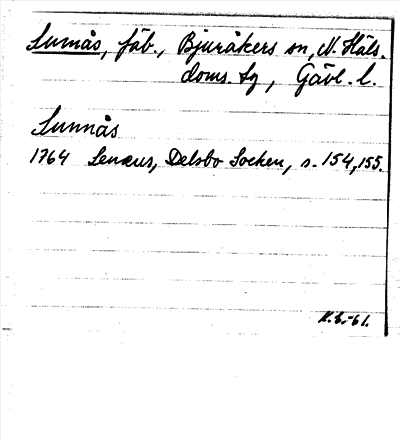 Sunnås, fäb., Bjuråkers sn, N. Häls.
doms. sg, Gävl. l.
Sunnås
1764 Lenæus, Delsbo Socken, s. 154, 155.
K.E.-61.